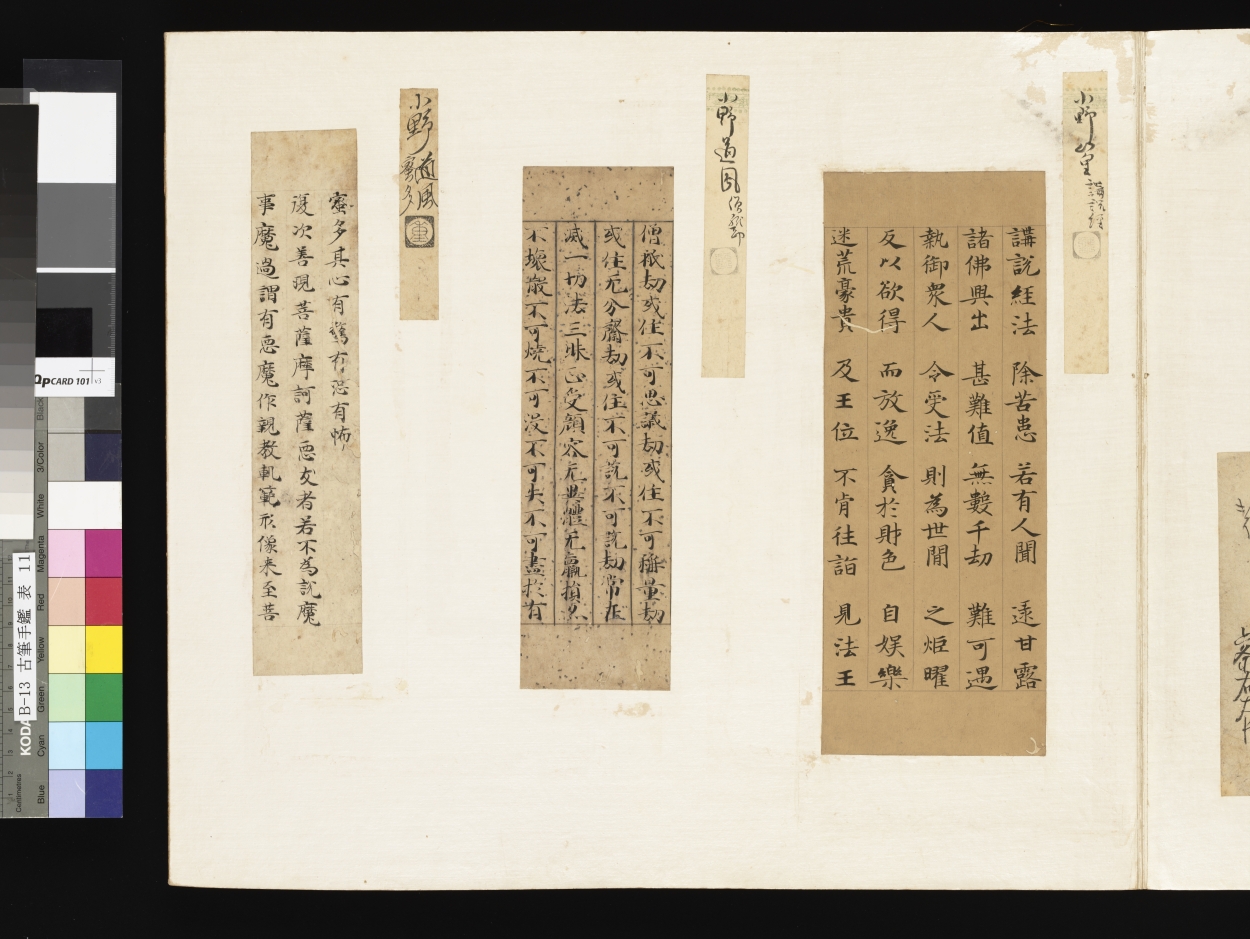 小野篁 講説経
講説経法 除苦患 若有人聞 逮甘露
諸佛興出 甚難值 無數千劫 難可遇
執御衆人 令受法 則為世間 之炬曜
反以欲得 而放逸 貪於財色 自娱樂
迷荒豪貴 及王位 不肯往詣 見法王
小野道風 僧祇劫
僧祇劫或住不可思議劫或住不可稱量劫
或住无分齊劫或住不可說不可說劫常在
滅一切法三昧正受顔容无異體无羸損不
不壞散不可燒不可沒不可失不可盡於有
小野道風 蜜多
蜜多其心有驚有恐有怖
復次善現菩薩摩訶薩惡友者若不為説魔
事魔過謂有惡魔作親教軌範形像来至菩
B-13 古筆手鑑 表 11
QpCARD 101 v3
KODA
Centimetres
Blue
Cyan
Green
Yellow
Red
Magenta
White
3/Color
Black